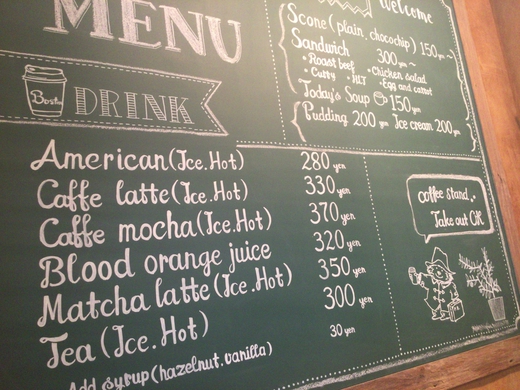 MENU
Best
DRINK
American (Ice.Hot) 280 yen
Caffe latte (Ice.Hot) 330 yen
Caffe mocha (Ice.Hot) 370 yen
Blood orange juice 320 yen
Matcha latte (Ice.Hot) 350 yen
Tea (Ice.Hot) 300 yen
Add syrup (hazelnut.vanilla) 30 yen
Welcome
Scone (plain, chocochip) 150 yen~
Sandwich 300 yen~
・Roast beef ・Chicken salad
・Curry ・HLT ・Egg and carrot
Today's Soup 150 yen
Pudding 200 yen Ice cream 200 yen
Coffee stand..
Take out OK